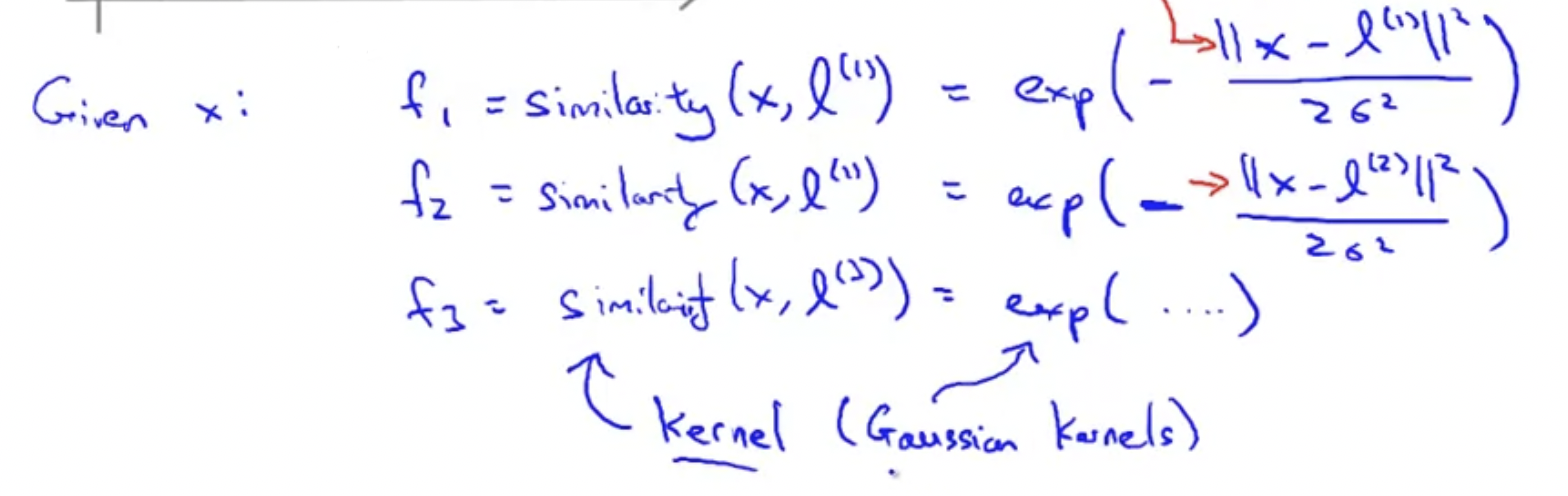 Given x: f₁ = similarity (x, l⁽¹⁾) = exp(- ‖x - l⁽¹⁾‖² / 2σ²)
f₂ = similarity (x, l⁽¹⁾) = exp(- ‖x - l⁽²⁾‖² / 2σ²)
f₃ = similarity (x, l⁽³⁾) = exp( ....)
Kernel (Gaussian Kernels)